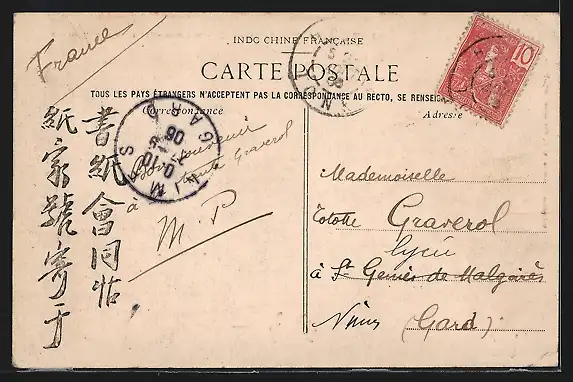 France
INDO CHINE FRANÇAISE
CARTE POSTALE
TOUS LES PAYS ÉTRANGERS N'ACCEPTENT PAS LA CORRESPONDANCE AU RECTO, SE RENSEIG
Correspondance
Adresse
10
NIMES GARE
7-10
06
書紙會同帖
紙家號寄于
souvenir
à toute Graverol
M. P
Mademoiselle
Totote Graverol
lycée
à St Geniès de Malgoirès
Nîmes (Gard)